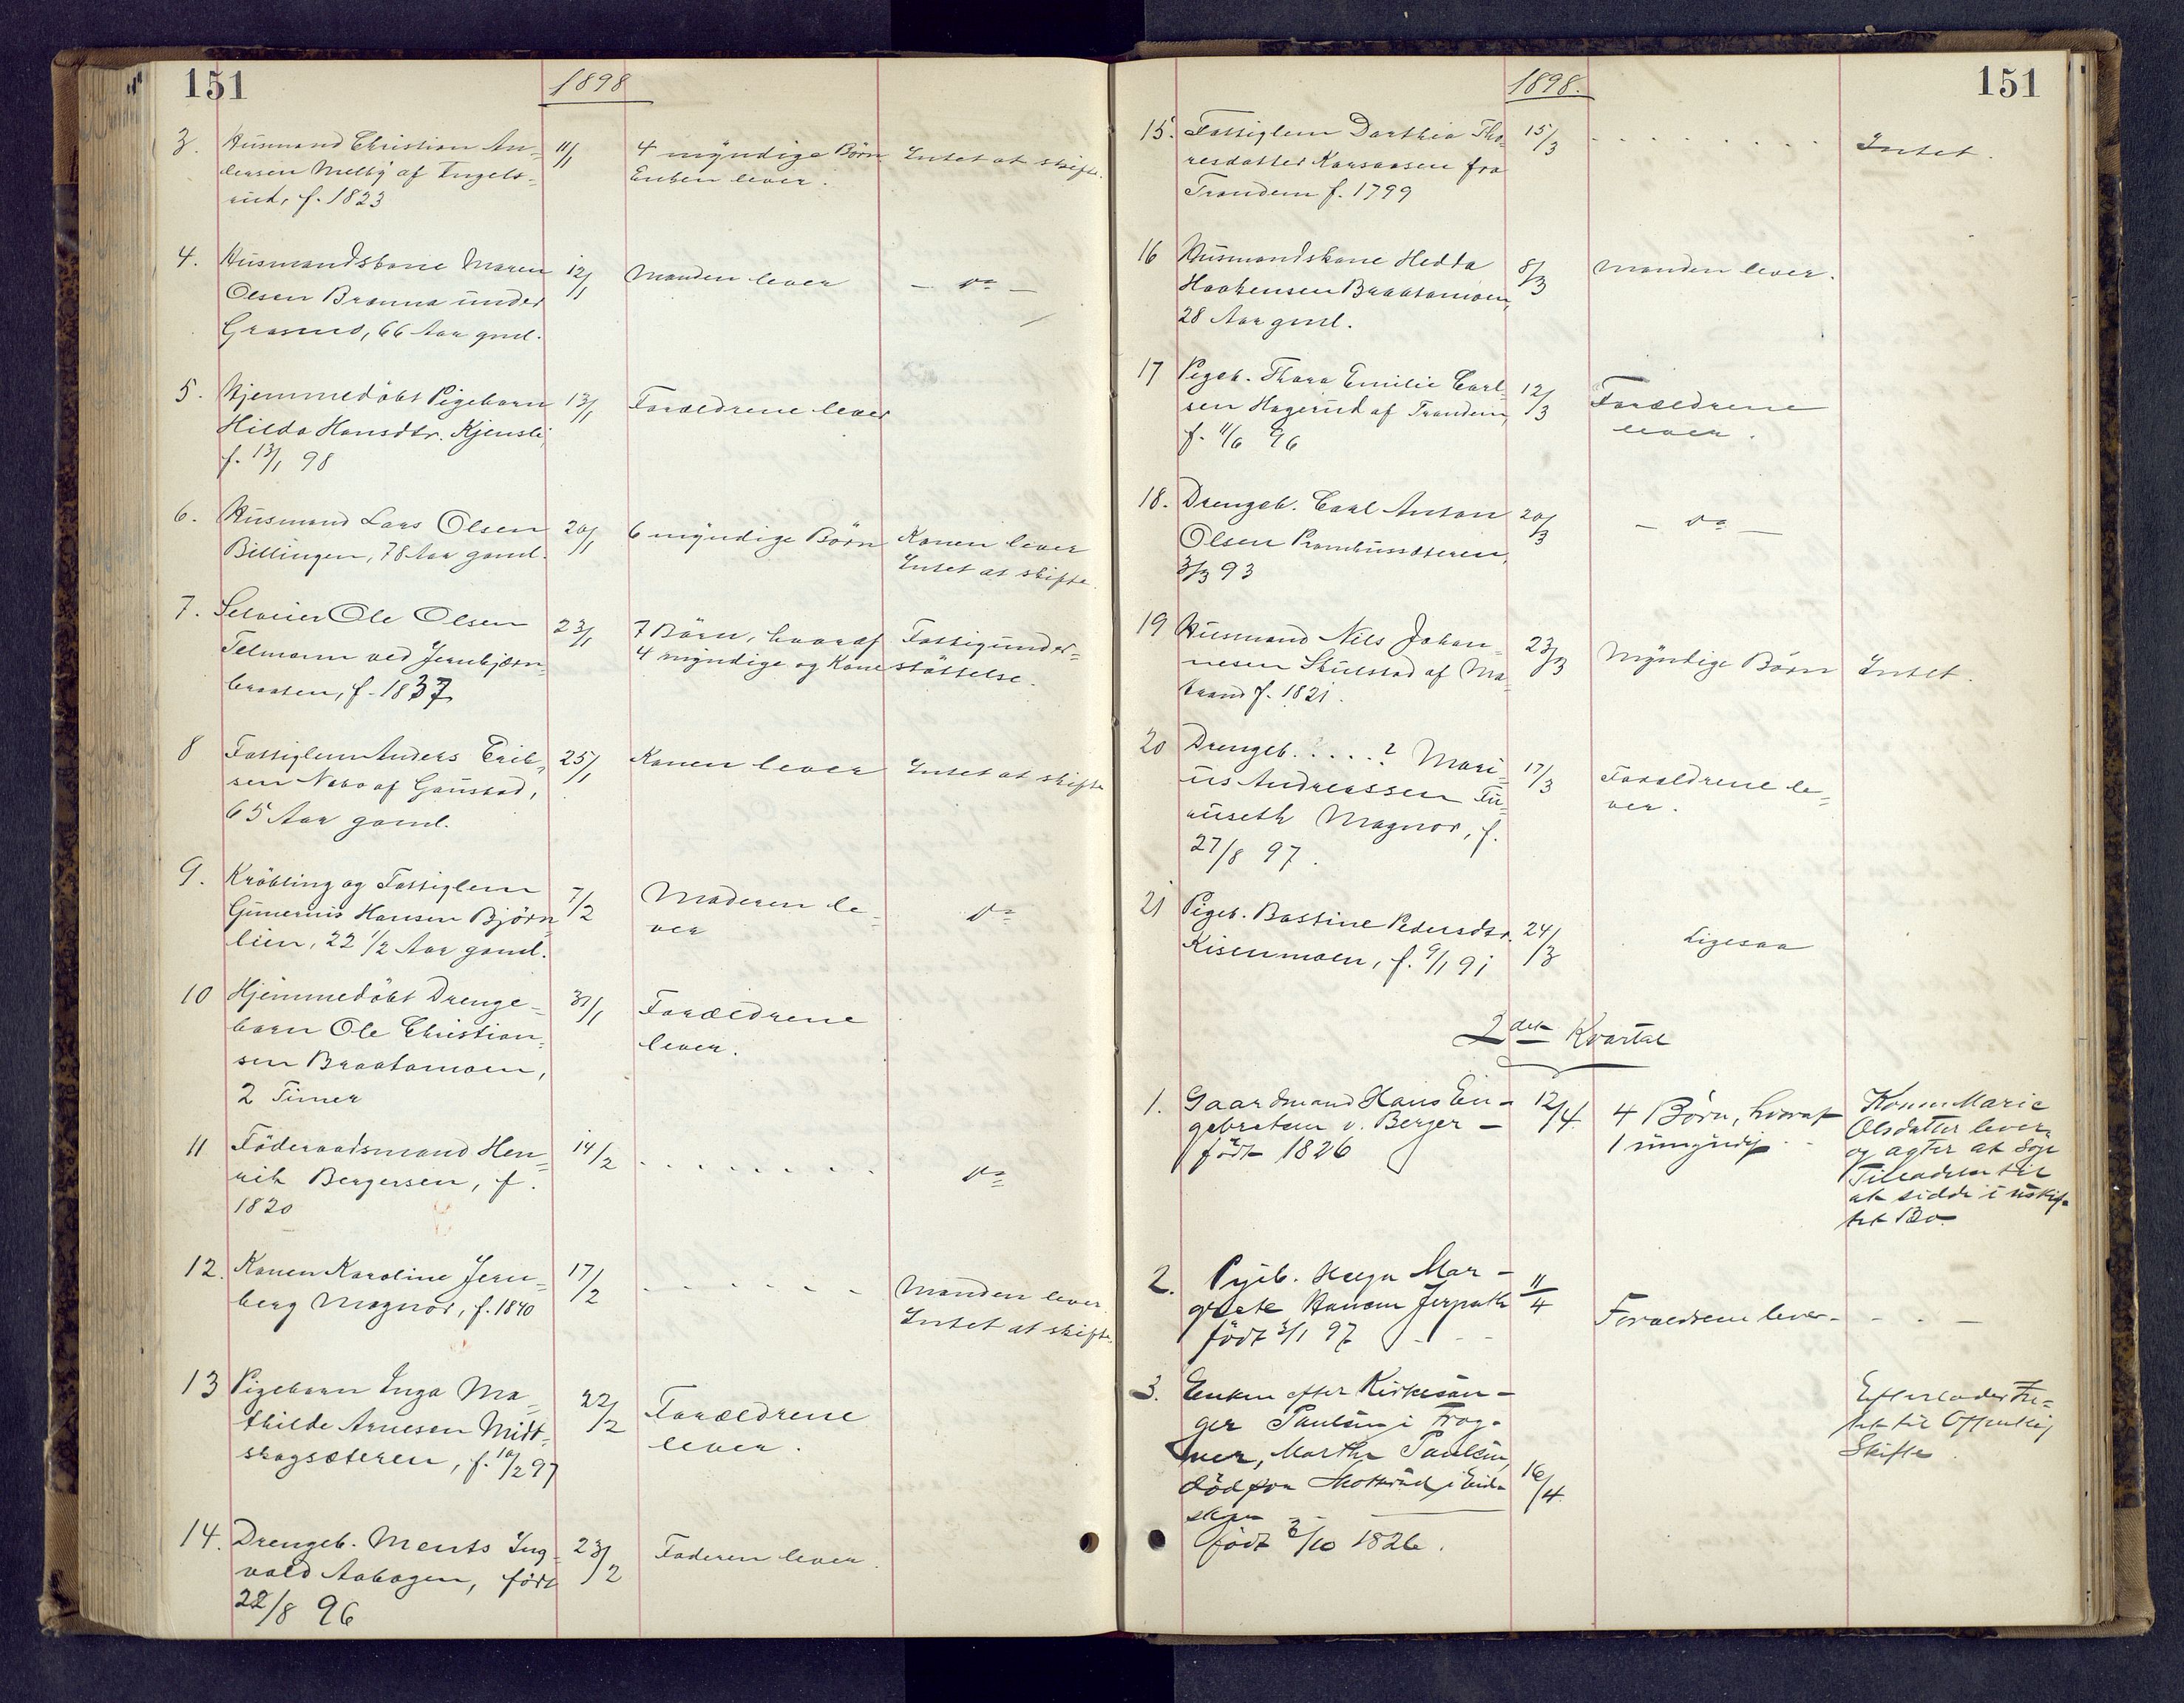 151
1898
3. Husmand Christian An-
dersen Melby af Ingels-
rud, f. 1823
11/1
4 myndige Børn
Enken lever.
Intet at skifte.
4. Husmandskone Maren
Olsen Branna under
Grasmo, 66 Aar gml.
12/1
Manden lever
— do —
5. Hjemmedöbt Pigebarn
Hilda Hansdtr. Kjensli
f. 13/1 98
13/1
Forældrene lever
6. Husmand Lars Olsen
Billingen, 78 Aar gaml.
20/1
6 myndige Børn
Konen lever
Intet at skifte.
7. Selveier Ole Olsen
Telmann ved Jernbjørn-
braaten, f. 1837
23/1
7 Børn, hvoraf
4 myndige og Kone
Fattigunder-
støttelse.
8 Fattiglem Anders Erik-
sen Nabo af Gaustad,
65 Aar gaml.
25/1
Konen lever
Intet at skifte
9. Kröbling og Fattiglem
Gunerius Hansen Björn-
lien, 22 1/2 Aar gaml.
7/2
Moderen le-
ver
do
10 Hjemmedöbt Drenge-
barn Ole Christian-
sen Braatamoen,
2 Timer
31/1
Forældrene
lever.
11 Föderaadsmand Hen-
rik Bergersen, f.
1820
14/2
. . . . . . . .
do
12. Konen Karoline Jern-
berg Magnor, f. 1840
17/2
- - - - - -
Manden lever
Intet at skifte.
13 Pigebarn Inga Ma-
thilde Arnesen Midt-
skogsæteren, f. 10/2 97
22/2
Forældrene
lever.
14. Drengeb. Ments Ing-
vald Aabogen, födt
22/8 96
23/2
Faderen lever.
1898.
151
15. Fattiglem Dorthea Tho-
resdatter Korsaasen fra
Trandem f. 1799
15/3
- . . . . . . .
Intet.
16 Husmandskone Hedda
Haakensen Braatamoen,
28 Aar gml.
8/3
Manden lever.
17 Pigeb. Thora Emilie Carl-
sen Hagerud af Trandem,
f. 11/6 96
12/3
Forældrene
lever.
18. Drengeb. Carl Anton
Olsen Prambussæteren,
3/3 93
20/3
— do —
19 Husmand Nils Johan-
nesen Skulstad af Ma-
trand f. 1821.
23/3
Myndige Børn
Intet.
20 Drengeb. . . . . ? Mari-
us Andreassen Fu-
ruseth Magnor, f.
27/8 97.
17/3
Forældrene le-
ver.
21 Pigeb. Bastine Pedersdtr.
Kisenmoen, f. 9/1 91
24/3
Ligesaa
2det Kvartal
1. Gaardmand Hans En-
gebretsen v. Berger —
födt 1826
12/4.
4 Børn, hvoraf
1 umyndig.
Konen Marie
Olsdatter lever
og agter at søge
Tilladelse til
at sidde i uskif-
tet Bo.
2. Pigeb. Helga Mar-
grete Hansen Jerpseth
födt 3/1 97
11/4
Forældrene lever.
3. Enken efter Kirkesan-
ger Paulsen i Trog-
ner, Marthe Paulsen,
död paa Skotterud i Eid-
skog
födt 3/10 1826.
16/4.
Efterlader
til Offentlig
Skifte